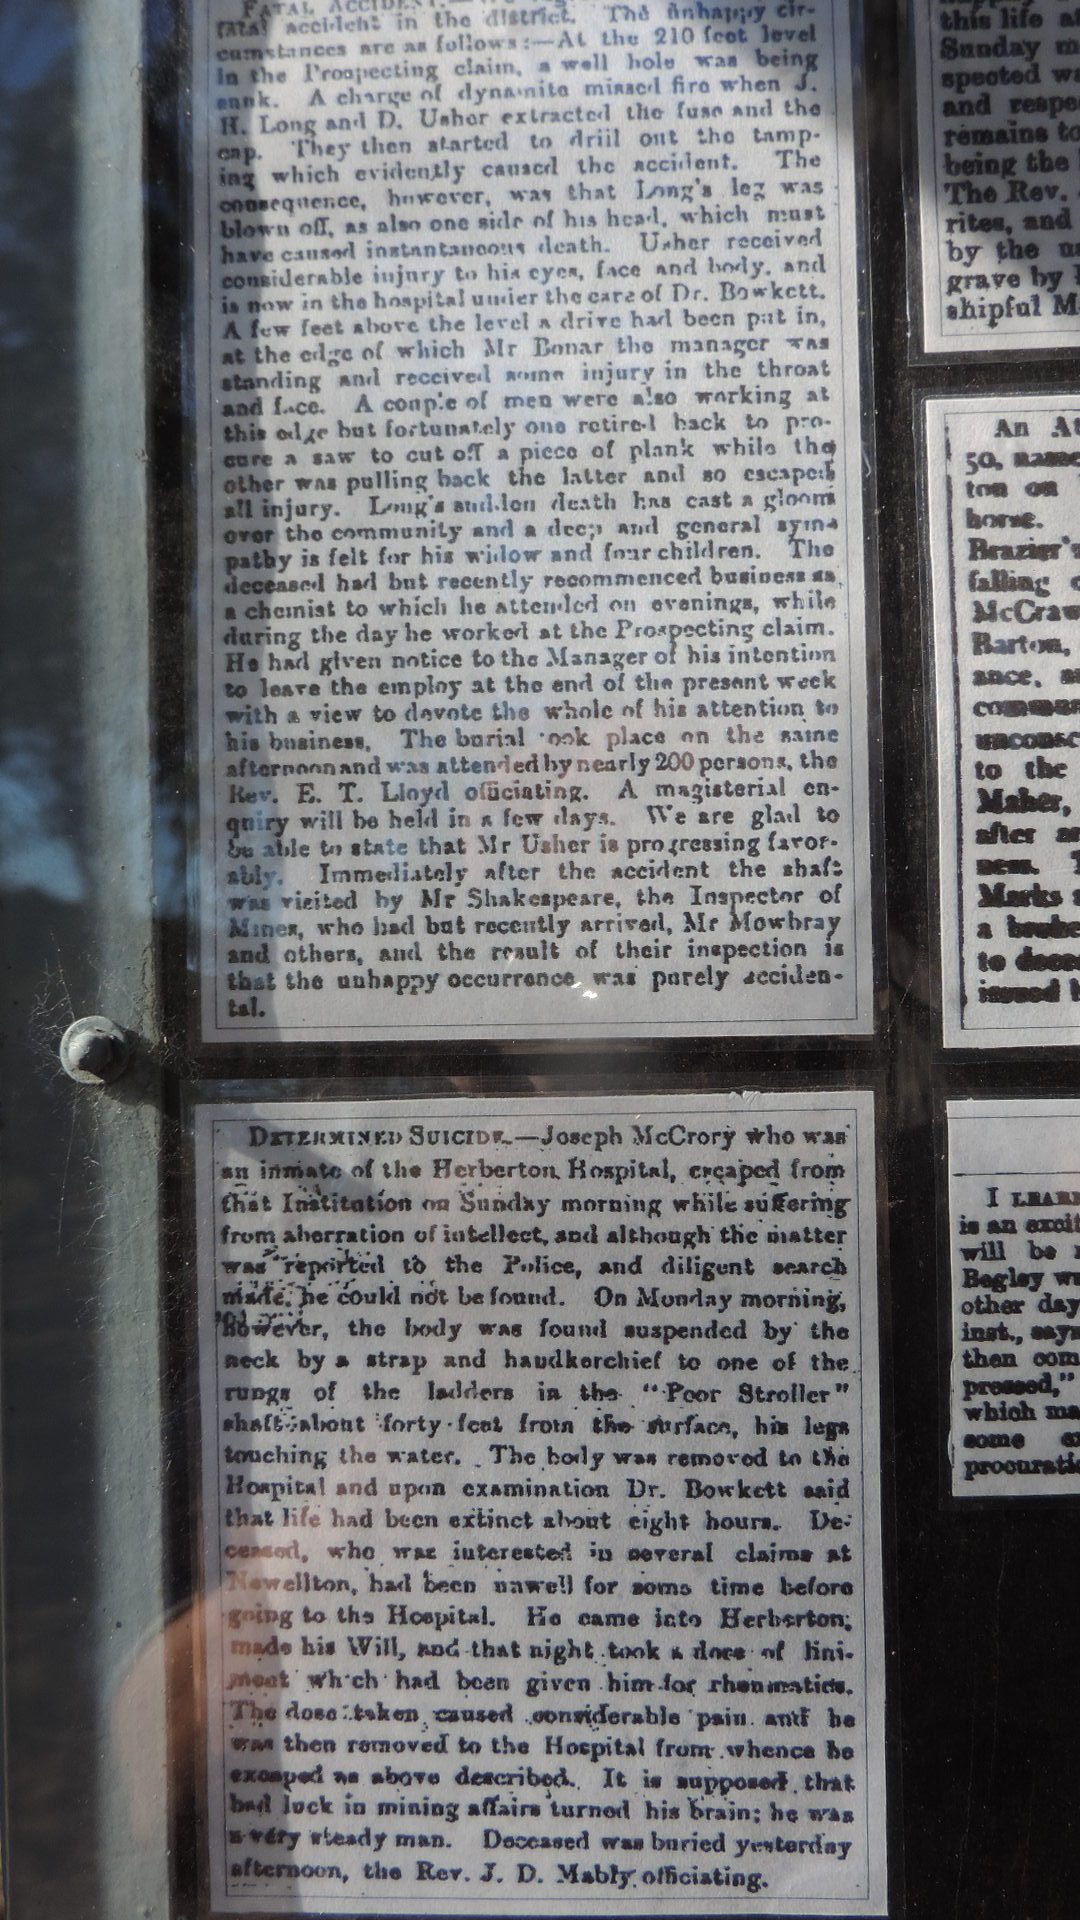 FATAL ACCIDENT.
fatal accident in the district. The unhappy cir-
cumstances are as follows:—At the 210 feet level
in the Prospecting claim, a well hole was being
sunk. A charge of dynamite missed fire when J.
H. Long and D. Usher extracted the fuse and the
cap. They then started to drill out the tamp-
ing which evidently caused the accident. The
consequence, however, was that Long's leg was
blown off, as also one side of his head, which must
have caused instantaneous death. Usher received
considerable injury to his eyes, face and body, and
is now in the hospital under the care of Dr. Bowkett.
A few feet above the level a drive had been put in,
at the edge of which Mr Bonar the manager was
standing and received some injury in the throat
and face. A couple of men were also working at
this edge but fortunately one retired back to pro-
cure a saw to cut off a piece of plank while the
other was pulling back the latter and so escaped
all injury. Long's sudden death has cast a gloom
over the community and a deep and general sym-
pathy is felt for his widow and four children. The
deceased had but recently recommenced business as
a chemist to which he attended on evenings, while
during the day he worked at the Prospecting claim.
He had given notice to the Manager of his intention
to leave the employ at the end of the present week
with a view to devote the whole of his attention to
his business. The burial took place on the same
afternoon and was attended by nearly 200 persons, the
Rev. E. T. Lloyd officiating. A magisterial en-
quiry will be held in a few days. We are glad to
be able to state that Mr Usher is progressing favor-
ably. Immediately after the accident the shaft
was visited by Mr Shakespeare, the Inspector of
Mines, who had but recently arrived, Mr Mowbray
and others, and the result of their inspection is
that the unhappy occurrence was purely acciden-
tal.
DETERMINED SUICIDE.—Joseph McCrory who was
an inmate of the Herberton Hospital, escaped from
that Institution on Sunday morning while suffering
from aberration of intellect, and although the matter
was reported to the Police, and diligent search
made, he could not be found. On Monday morning,
however, the body was found suspended by the
neck by a strap and handkerchief to one of the
rungs of the ladders in the "Poor Stroller"
shaft about forty feet from the surface, his legs
touching the water. The body was removed to the
Hospital and upon examination Dr. Bowkett said
that life had been extinct about eight hours. De-
ceased, who was interested in several claims at
Newellton, had been unwell for some time before
going to the Hospital. He came into Herberton,
made his Will, and that night took a dose of lini-
ment which had been given him for rheumatics.
The dose taken caused considerable pain and he
was then removed to the Hospital from whence he
escaped as above described. It is supposed that
bad luck in mining affairs turned his brain; he was
a very steady man. Deceased was buried yesterday
afternoon, the Rev. J. D. Mably officiating.
this life
Sunday
spected
and
remains to
being the
The Rev.
rites, and
by the
grave by
shipful
An
50,
ton on
horse.
Brazier's
falling
McCraw
Barton,
ance,
to the
Maher,
after
ness.
Marks
a
to
issued
I LEARN
is an
will be
Begley
other day
inst., says
then com
pressed,"
which
some
procuratio